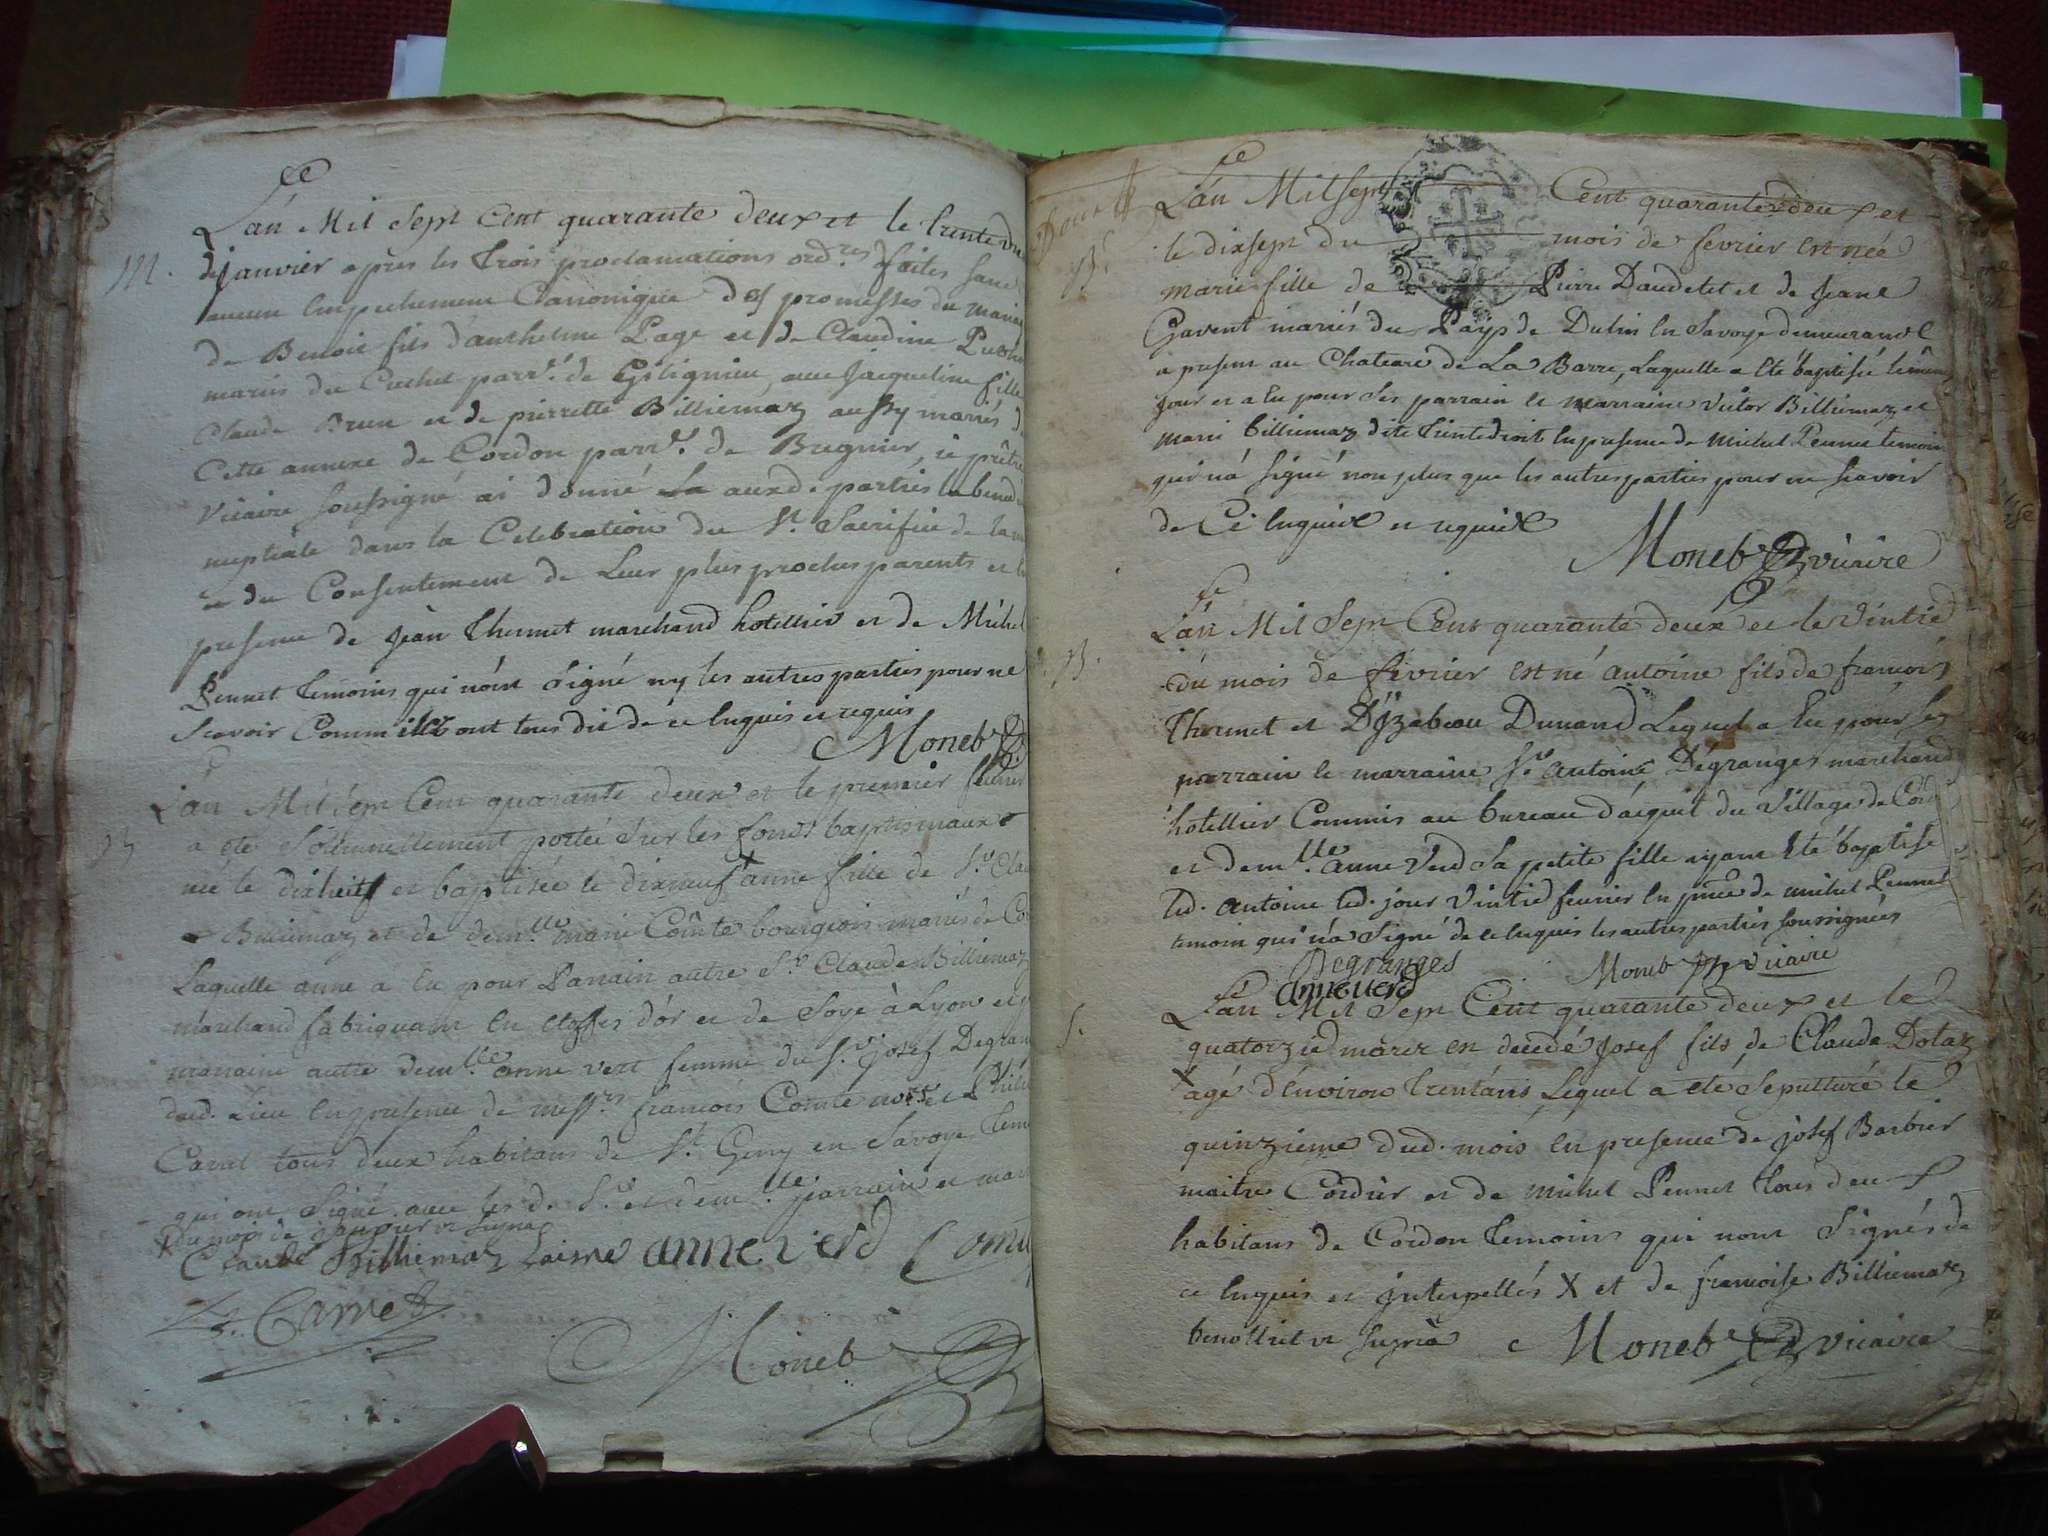 L'an Mil Sept Cent quarante deux et le trente du
de Janvier après les trois proclamations ord.res faites sans
aucun Empechement Canonique des promesses du mariag
de Benoit fils d'anthelme Page et de Claudine
mariés du Cuchet parr.e de Gélignieu, avec Jacqueline fille
Claude Brun et de pierrette Billiemaz aussy mariés d
Cette annexe de Cordon parr.e de Bregnier, ie prêtre
Vicaire soussigné ai donné la auxd. parties la bened
nuptiale dans la Celebration du St. Sacrifice de la m
et du Consentement de Leur plus proches parents et
presence de Jean Thermet marchand hotellier et de Michel
Pennet temoins qui nónt signé ny les autres parties pour ne
scavoir Comm'ills ont tous dit de ce Enquis et requis
Moneb
m.
L'an Mil sept Cent quarante deux et le premier fevrier
a eté Sólemnellement portée sur les fonds baptismaux
née le dixhuit et baptisée le dixneuf + anne fille de Sr. Clau
Billiemaz et de dem.lle marie Comte bourgeois mariés de Co
Laquelle anne a Eu pour Parrain autre Sr. Claude Billiemaz
marchand fabriquant En etoffes d'ór et de Soye à Lyon et p
marraine autre dem.lle anne vert femme du Sr. josef Degran
dud. Lieu En presence de mess.rs francois Comte no.re et
Caret tous deux habitans de St. Geny en Savoye tem
qui ont signé avec les d. Sr. et dem.lle parrain et mar
+ du mois de janvier
Claude Billiemaz anne verd Comte
Carret
Moneb
L'an Mil sept Cent quarante deux et
le dixsept du mois de fevrier est née
marie fille de Pierre Daudetet et de Jeane
Gavent mariés du Païs de Dulin En Savoye demeurant
a present au Chateau de La Barre, Laquelle a Eté baptisée le même
jour et a Eu pour Ses parrain et marraine Victor Billiemaz et
marie billiemaz dite En presence de Michel Pennet temoin
qui n'a signé non plus que les autres parties pour ne scavoir
de Ce Enquis et requis
Moneb vicaire
L'an Mil Sept Cent quarante deux et le Vintie
du mois de fevrier est né antoine fils de francois
Thermet et D'yzabeau Dunand Lequel a Eu pour ses
parrain et marraine Sr. antoine Dégranges marchand
hotellier Commis au bureau d'aquit du Village de Cord
et dem.lle anne Verd Sa petite fille ayant Eté baptisé
led. antoine led. jour Vintie fevrier En pnce de michel Pennet
temoin qui n'a Signé de ce Enquis les autres parties soussignées
Degranges
anne verd
Moneb vicaire
L'an Mil Sept Cent quarante deux et le
quatorzie mars est decedé josef fils de Claude Dolaz
X agé d'Environ trent'ans Lequel a eté Sepulturé le
quinzieme dud. mois En presence de josef Barbier
maitre Cordier et de michel Pennet tous deux
habitans de Cordon temoins qui n'ont Signés de
ce Enquis et jnterpellés X et de francoise Billiemaz
Moneb vicaire